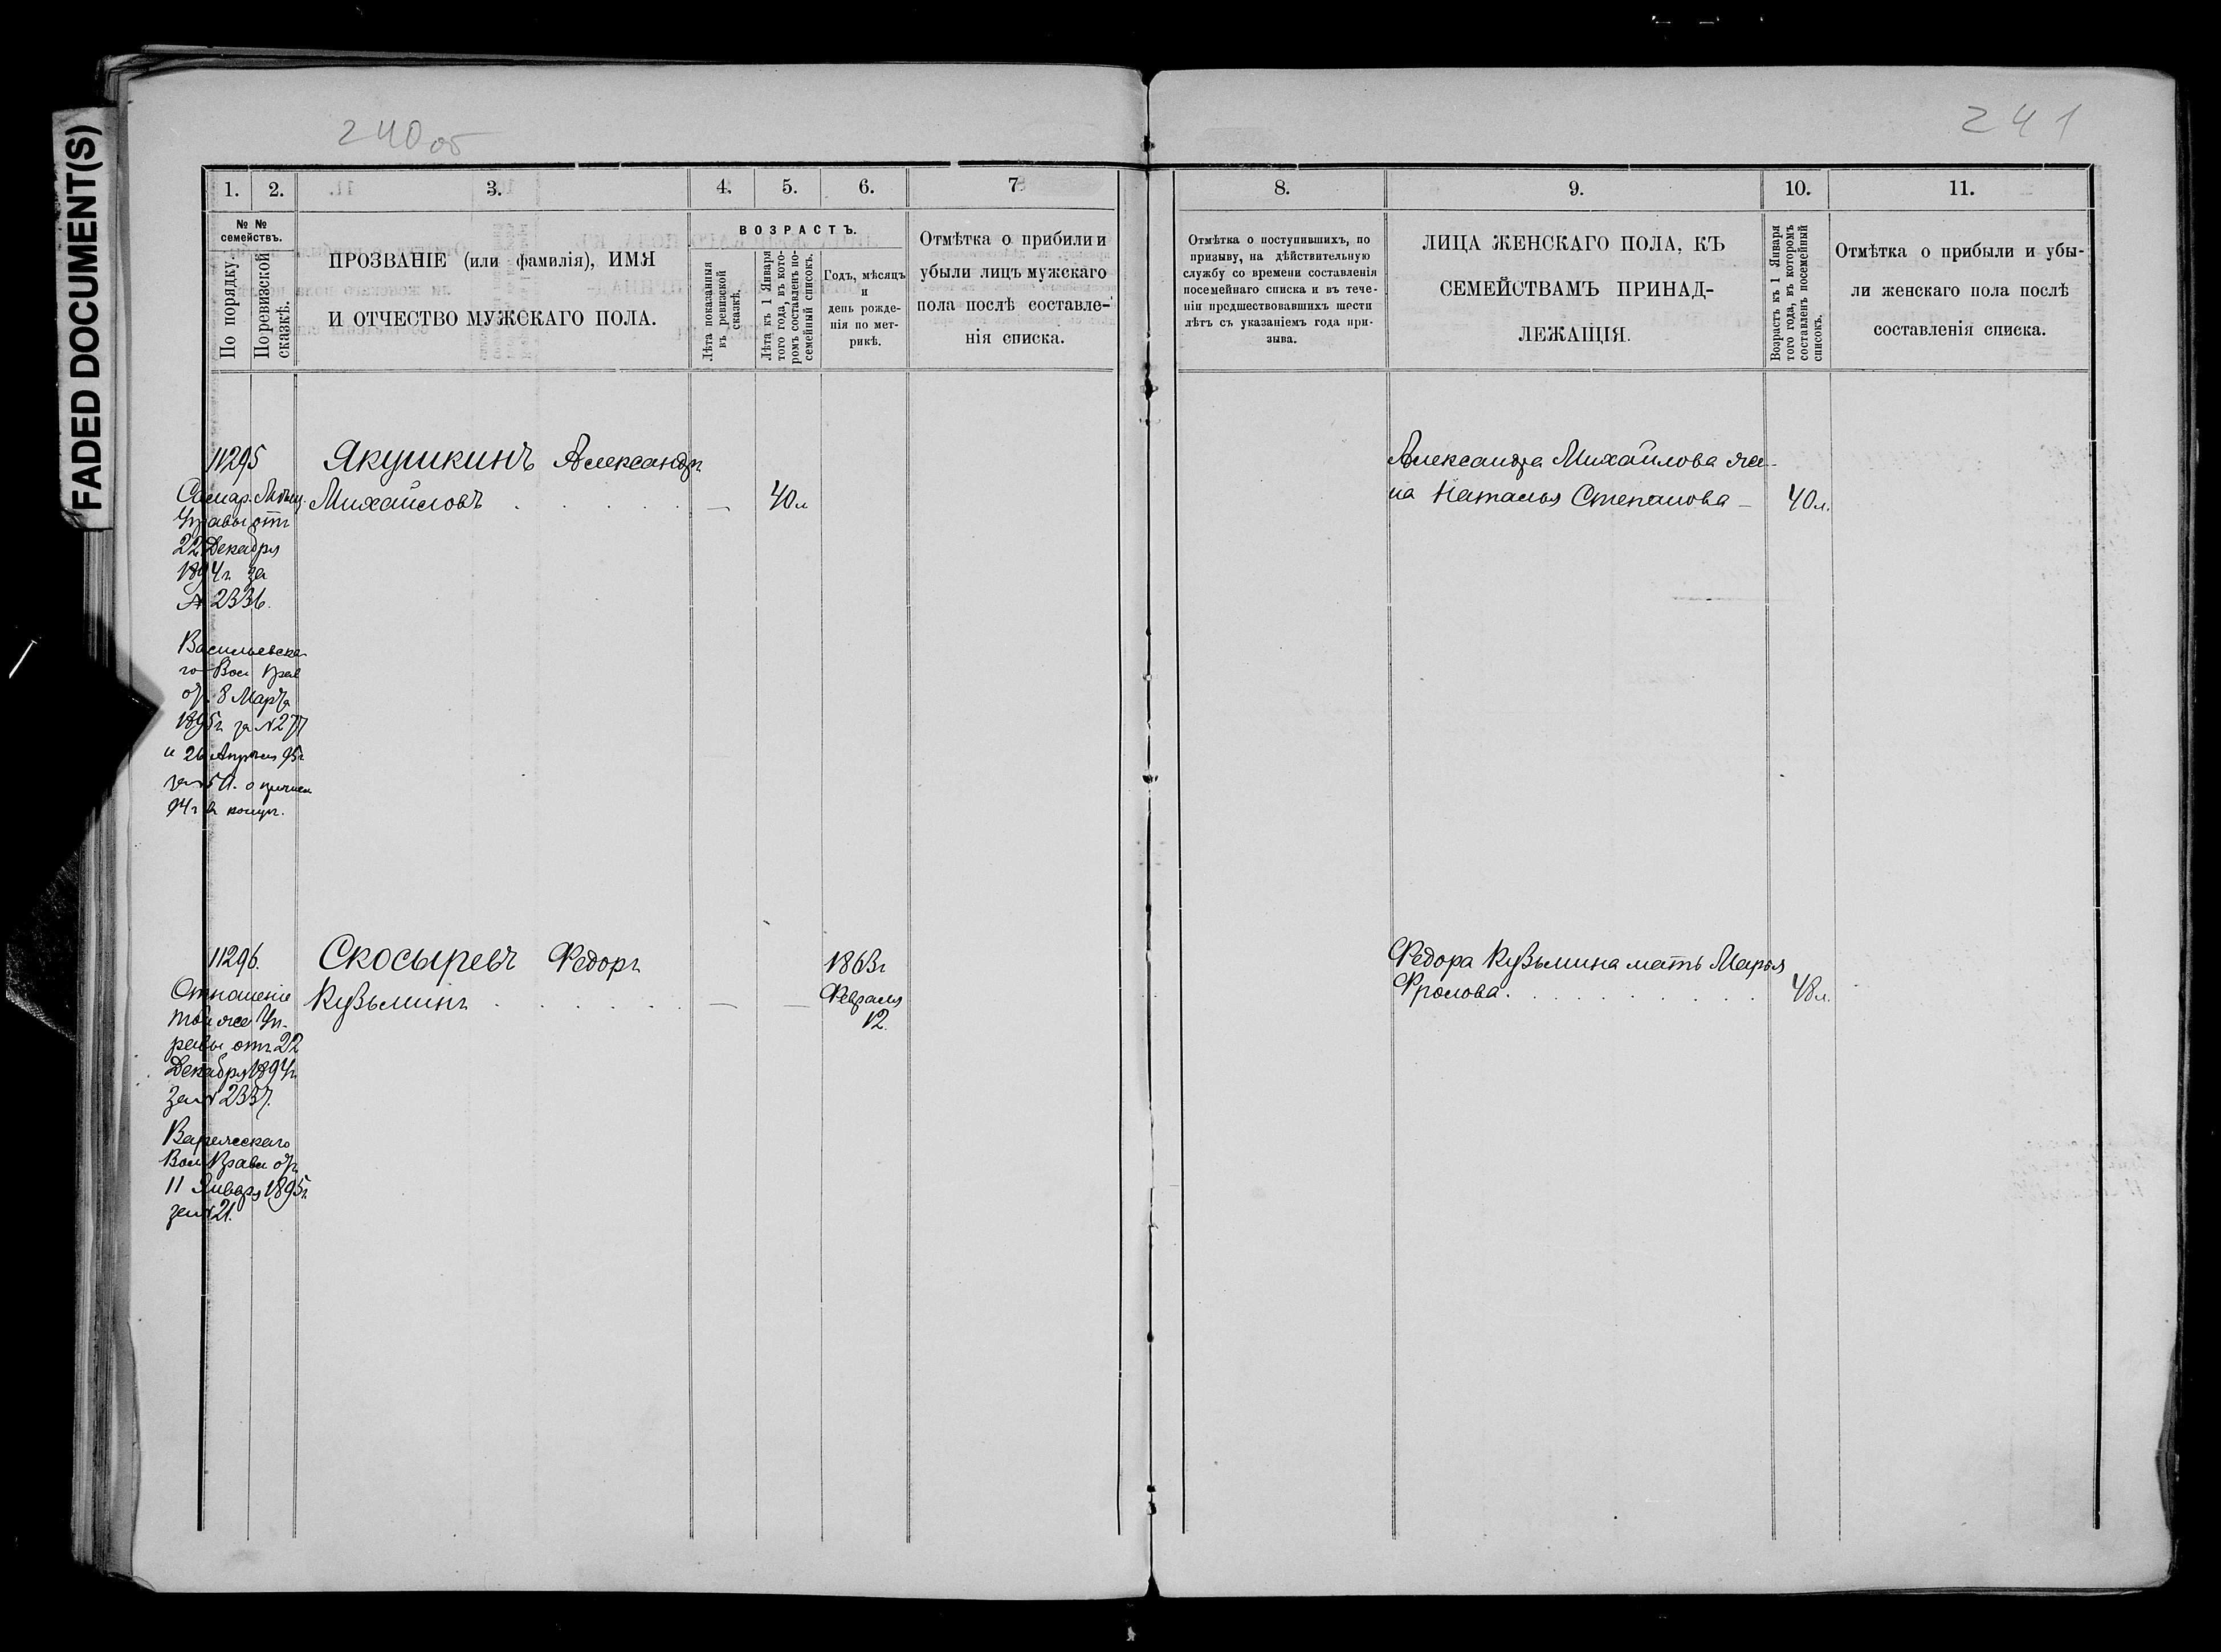 FADED DOCUMENT(S)
240 об
241
1.
2.
3.
4.
5.
6.
7
8.
9.
10.
11.
№ №
семействъ.
По порядку.
По ревизской
сказкѣ.
ПРОЗВАНІЕ (или фамилія), ИМЯ
И ОТЧЕСТВО МУЖСКАГО ПОЛА.
ВОЗРАСТЪ.
Лѣта показанныя
въ ревизской
сказкѣ.
Лѣта къ 1 Января
того года, въ кото-
ромъ составленъ по-
семейный списокъ.
Годъ, мѣсяцъ
и
день рожде-
нія по мет-
рикѣ.
Отмѣтка о прибыли и
убыли лицъ мужскаго
пола послѣ составле-
нія списка.
Отмѣтка о поступившихъ, по
призыву, на дѣйствительную
службу со времени составленія
посемейнаго списка и въ тече-
ніи предшествовавшихъ шести
лѣтъ съ указаніемъ года при-
зыва.
ЛИЦА ЖЕНСКАГО ПОЛА, КЪ
СЕМЕЙСТВАМЪ ПРИНАД-
ЛЕЖАЩІЯ.
Возрастъ къ 1 Января
того года, въ которомъ
составленъ посемейный
списокъ.
Отмѣтка о прибыли и убы-
ли женскаго пола послѣ
составленія списка.
11295
Якушкинъ Александръ
Михайловъ . . . . . — 40 л
Александра Михайлова же-
на Наталья Степанова — 40 л.
Самар. Мѣщ.
Управы отъ
22 Декабря
1894 г. за
№ 2336.
Васильевска-
го Вол Прав
отъ 8 Марта
1895 г. за № 277
и 26 Апрѣля 95 г
11296.
Скосыревъ Федоръ
Кузьминъ . . . . . . — —
1863 г
Февраля
12.
Федора Кузьмина мать Марья
Фролова . . . . . . . . . 48 л.
Отношеніе
той же Уп-
равы отъ 22
Декабря 1894 г.
за № 2337.
Вол Правл отъ
11 Января 1895 г.
за № 21.